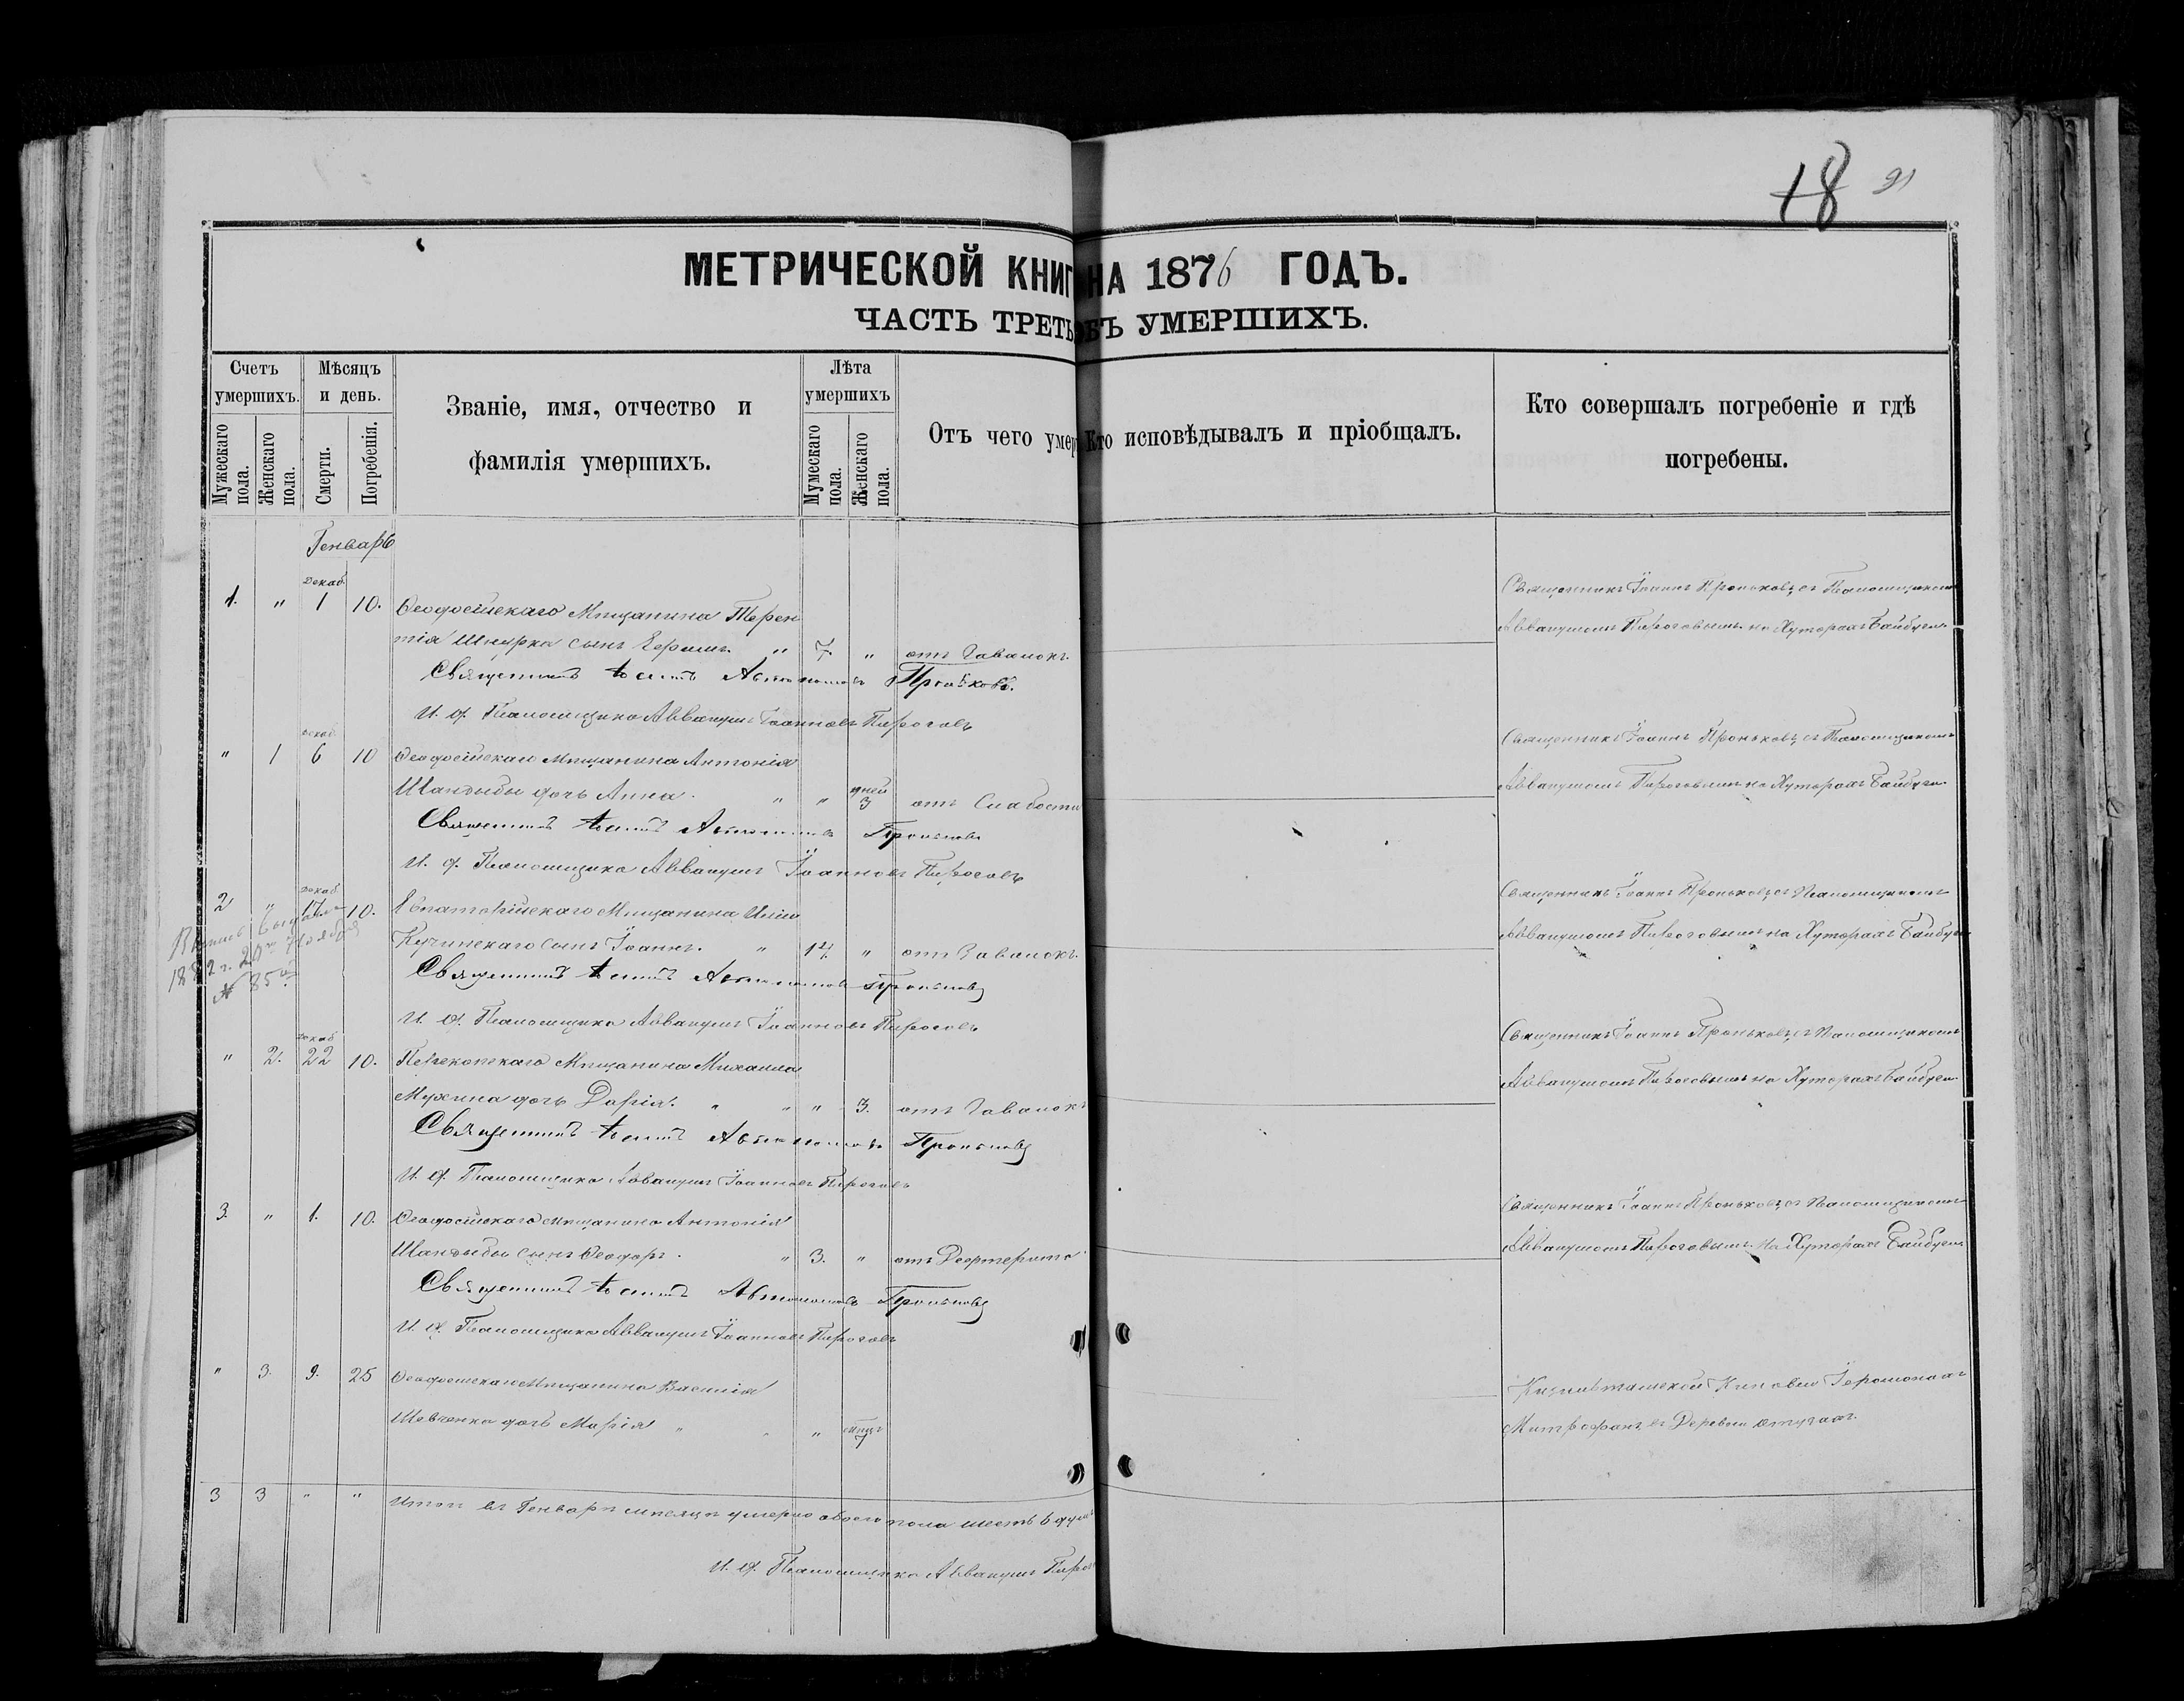 18 91
МЕТРИЧЕСКОЙ КНИГ НА 1876 ГОДЪ.
ЧАСТЬ ТРЕТЬ ОБЪ УМЕРШИХЪ.
Счетъ умершихъ.
Мужескаго пола.
Женскаго пола.
Мѣсяцъ и день.
Смерти.
Погребенія.
Званіе, имя, отчество и
фамилія умершихъ.
Лѣта умершихъ
Мужескаго пола.
Женскаго пола.
Отъ чего умер
Кто исповѣдывалъ и пріобщалъ.
Кто совершалъ погребеніе и гдѣ
погребены.
Генварь
Декаб.
1. " 1 10. Ѳеодосійскаго Мѣщанина Терен
тія сынъ " 7 " отъ
Священникъ Автономовъ Проньковъ.
И. д. Псаломщика Аввакумъ Іоанновъ Пироговъ
Священникъ Іоаннъ Проньковъ съ Псаломщикомъ
Аввакумомъ Пироговымъ на Хуторахъ Байбуги
декаб.
" 1 6 10 Ѳеодосійскаго Мѣщанина Антонія
Шандыбы дочь Анна. " " дней 3 отъ Слабости
Священникъ Автономовъ Проньковъ
И. д. Псаломщика Аввакумъ Іоанновъ Пироговъ
Священникъ Іоаннъ Проньковъ съ Псаломщикомъ
Аввакумомъ Пироговымъ на Хуторахъ Байбуги
декаб.
2 " 17 10. Евпаторійскаго Мѣщанина
сынъ Іоаннъ. " " отъ
Священникъ Автономовъ Проньковъ
И. д. Псаломщика Аввакумъ Іоанновъ Пироговъ
Священникъ Іоаннъ Проньковъ съ Псаломщикомъ
Аввакумомъ Пироговымъ на Хуторахъ Байбуги
Ноября
№ 85
декаб.
" 2. 22 10. Перекопскаго Мѣщанина Михаила
Мухина дочь Дарія. " " " 3. отъ
Священникъ Автономовъ Проньковъ
И. д. Псаломщика Аввакумъ Іоанновъ Пироговъ
Священникъ Іоаннъ Проньковъ съ Псаломщикомъ
Аввакумомъ Пироговымъ на Хуторахъ Байбуги
3. " 1. 10. Ѳеодосійскаго Мѣщанина Антонія
Шандыбы сынъ Ѳеодоръ. " 3. " отъ
Священникъ Автономовъ Проньковъ
И. д. Псаломщика Аввакумъ Іоанновъ Пироговъ
Священникъ Іоаннъ Проньковъ съ Псаломщикомъ
Аввакумомъ Пироговымъ на Хуторахъ Байбуги
" 3. 9. 25 Ѳеодосійскаго Мѣщанина Василія
Шевченка дочь Марія " " " 7
Киновіи Іеромонахъ
Митрофанъ въ Деревни
3 3 " " Итого въ Генварѣ мѣсяцѣ умерло обоего пола шесть 6 душъ
И. д. Псаломщика Аввакумъ Пирог